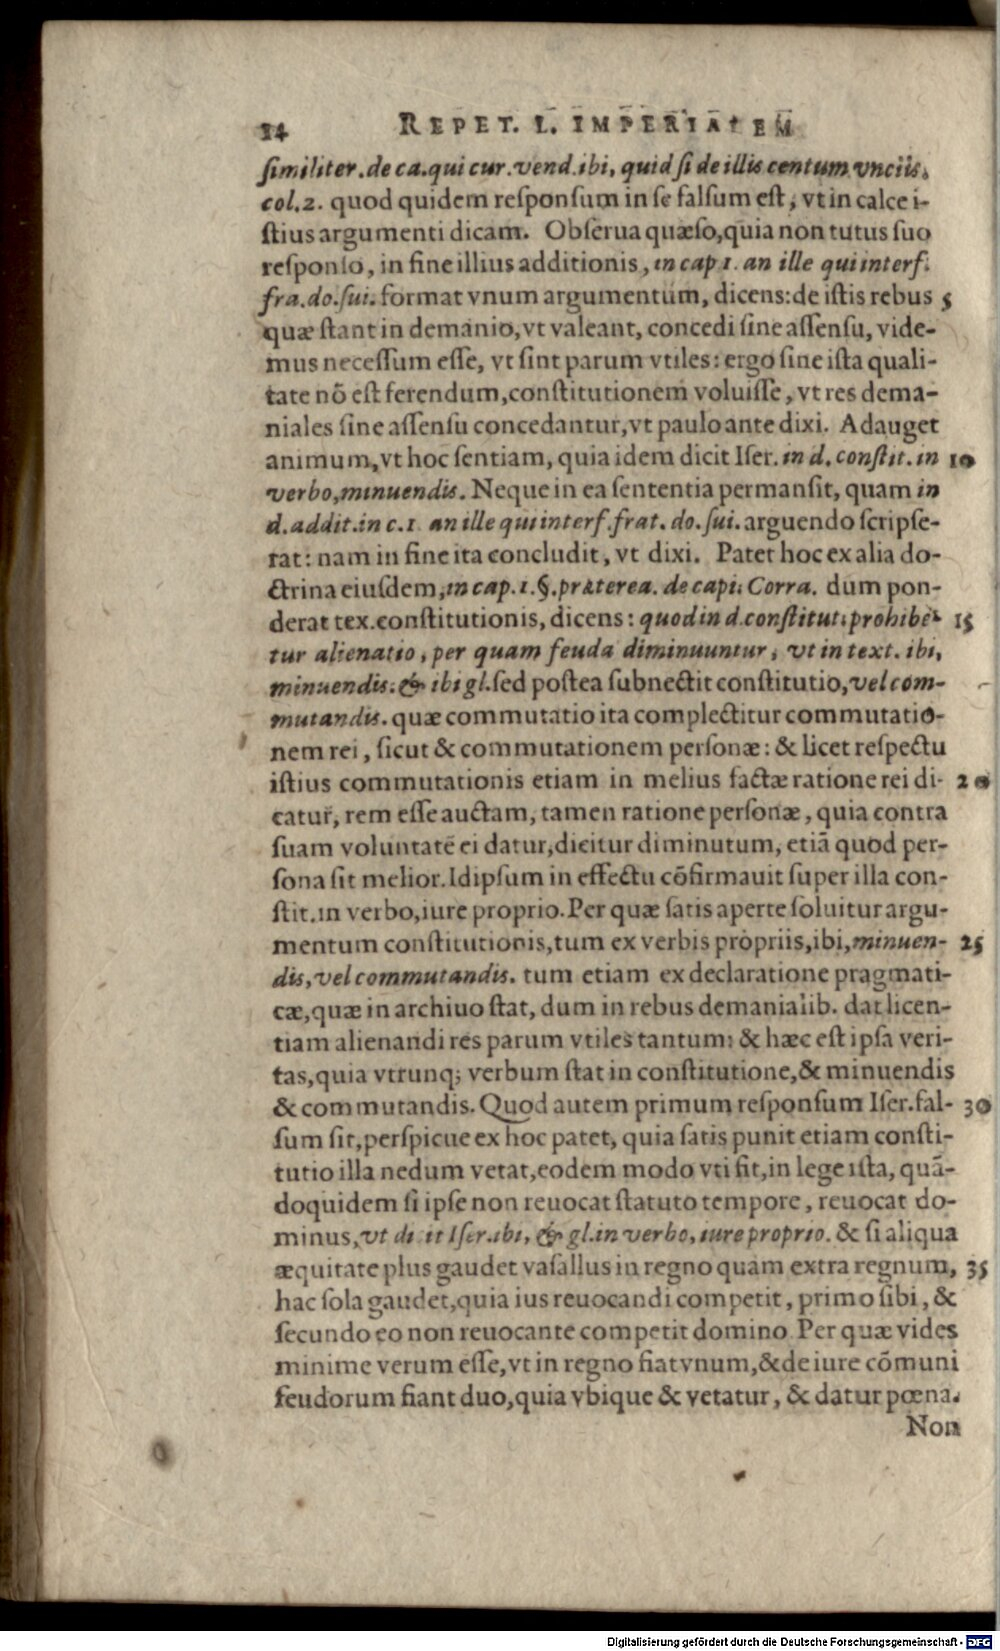 14 REPET. L. IMPERIALEM
ſimiliter.de ca.qui cur.vend.ibi, quid ſi de illis centum vnciis.
col.2. quod quidem reſponſum in ſe falſum eſt, vt in calce i-
ſtius argumenti dicam. Obſerua quæſo,quia non tutus ſuo
reſponſo, in fine illius additionis, in cap 1. an ille qui interf.
fra.do.ſui. format vnum argumentum, dicens:de iſtis rebus 5
quæ ſtant in demanio,vt valeant, concedi ſine aſſenſu, vide-
mus neceſſum eſſe, vt ſint parum vtiles: ergo ſine iſta quali-
tate nõ eſt ferendum,conſtitutionem voluiſſe, vt res dema-
niales ſine aſſenſu concedantur,vt paulo ante dixi. Adauget
animum,vt hoc ſentiam, quia idem dicit Iſer. in d. conſtit. in 10
verbo,minuendis. Neque in ea ſententia permanſit, quam in
d.addit.in c.1. an ille qui interf.frat. do.ſui. arguendo ſcripſe-
rat: nam in fine ita concludit, vt dixi. Patet hoc ex alia do-
ctrina eiuſdem,in cap.1.§.præterea. de capi. Corra. dum pon-
derat tex.conſtitutionis, dicens: quod in d.conſtitut.prohibe- 15
tur alienatio, per quam feuda diminuuntur, vt in text. ibi,
minuendis. & ibi gl. ſed poſtea ſubnectit conſtitutio,vel com-
mutandis. quæ commutatio ita complectitur commutatio-
nem rei, ſicut & commutationem perſonæ: & licet reſpectu
iſtius commutationis etiam in melius factæ ratione rei di- 20
catur, rem eſſe auctam, tamen ratione perſonæ, quia contra
ſuam voluntatē ei datur,dicitur diminutum, etiã quod per-
ſona ſit melior.Idipſum in effectu cõfirmauit ſuper illa con-
ſtit.in verbo,iure proprio.Per quæ ſatis aperte ſoluitur argu-
mentum conſtitutionis,tum ex verbis propriis,ibi,minuen- 25
dis,vel commutandis. tum etiam ex declaratione pragmati-
cæ,quæ in archiuo ſtat, dum in rebus demanialib. dat licen-
tiam alienandi res parum vtiles tantum: & hæc eſt ipſa veri-
tas,quia vtrunq; verbum ſtat in conſtitutione,& minuendis
& commutandis. Quod autem primum reſponſum Iſer.fal- 30
ſum ſit,perſpicue ex hoc patet, quia ſatis punit etiam conſti-
tutio illa nedum vetat,eodem modo vti fit,in lege iſta, quã-
doquidem ſi ipſe non reuocat ſtatuto tempore, reuocat do-
minus,vt dicit Iſer.ibi, & gl.in verbo, iure proprio. & ſi aliqua
æquitate plus gaudet vaſallus in regno quam extra regnum, 35
hac ſola gaudet,quia ius reuocandi competit, primo ſibi, &
ſecundo eo non reuocante competit domino Per quæ vides
minime verum eſſe,vt in regno fiat vnum,& de iure cõmuni
feudorum fiant duo,quia vbique & vetatur, & datur pœna.
Non
Digitalisierung gefördert durch die Deutsche Forschungsgemeinschaft - DFG